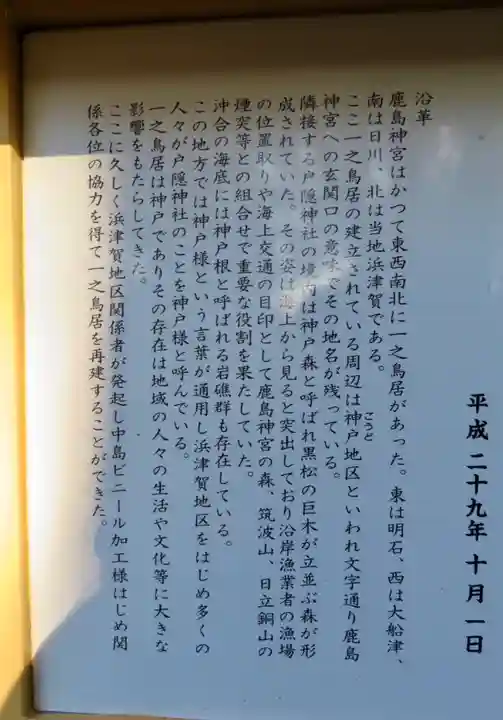 沿革
鹿島神宮はかつて東西南北に一之鳥居があった。東は明石、西は大船津、
南は日川、北は当地浜津賀である。
ここ一之鳥居の建立されている周辺は神戸地区といわれ文字通り鹿島
ごうど
神宮への玄関口の意味でその地名が残っている。
隣接する戸隠神社の境内は神戸森と呼ばれ黒松の巨木が立並ぶ森が形
成されていた。その姿は海上から見ると突出しており沿岸漁業者の漁場
の位置取りや海上交通の目印として鹿島神宮の森、筑波山、日立銅山の
煙突等との組合せで重要な役割を果たしていた。
沖合の海底には神戸根と呼ばれる岩礁群も存在している。
この地方では神戸様という言葉が通用し浜津賀地区をはじめ多くの
人々が戸隠神社のことを神戸様と呼んでいる。
一之鳥居は神戸でありその存在は地域の人々の生活や文化等に大きな
影響をもたらしてきた。
ここに久しく浜津賀地区関係者が発起し中島ビニール加工様はじめ関
係各位の協力を得て一之鳥居を再建することができた。
平成二十九年十月一日